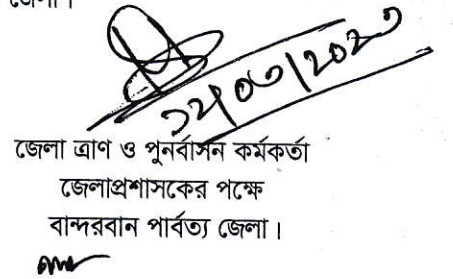 জেলা।
জেলা ত্রাণ ও পুনর্বাসন কর্মকর্তা
জেলাপ্রশাসকের পক্ষে
বান্দরবান পার্বত্য জেলা।